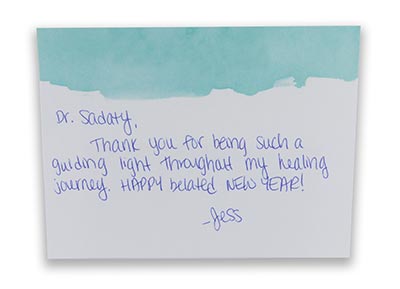 Dr. Sadaty,
Thank you for being such a
guiding light throughout my healing
journey. HAPPY belated NEW YEAR!
-Jess